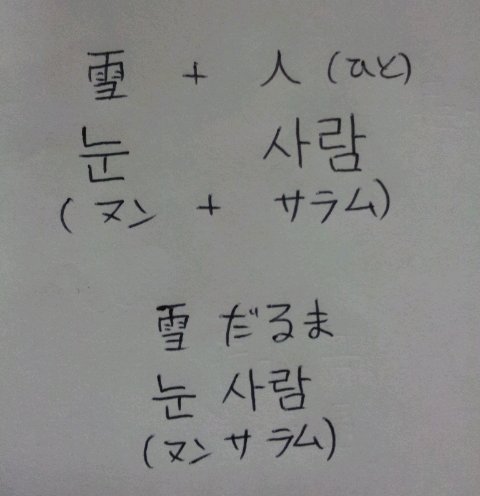 雪 + 人 (ひと)
눈 사람
(ヌン + サラム)
雪 だるま
눈 사람
(ヌン サラム)